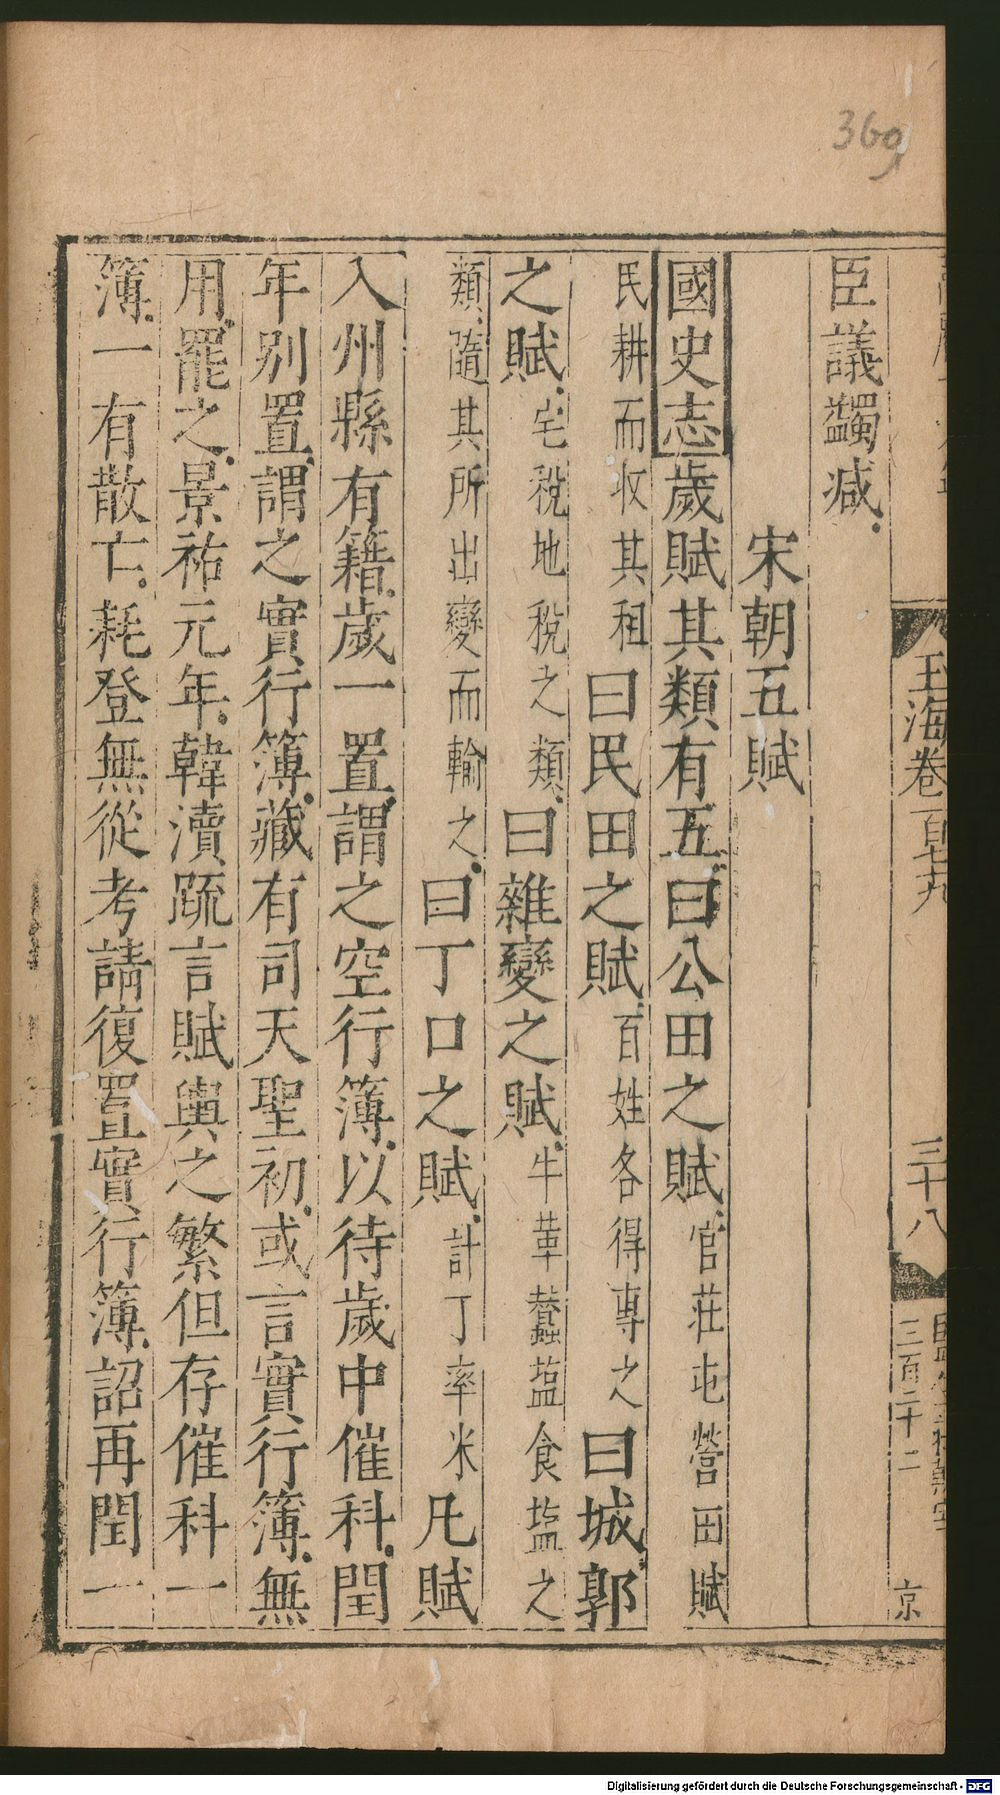 369
玉海卷一百七十九
三十八
三百二十二
京
臣議蠲减
宋朝五賦
國史志歲賦其類有五曰公田之賦官莊屯營田賦
民耕而收其租曰民田之賦百姓各得專之曰城郭
之賦宅稅地稅之類曰雜變之賦牛革蠶塩食塩之
類隨其所出變而輸之曰丁口之賦計丁率米凡賦
入州縣有籍歲一置謂之空行簿以待歲中催科閏
年别置謂之實行簿藏有司天聖初或言實行簿無
用罷之景祐元年韓瀆疏言賦輿之繁但存催科一
簿一有散亡耗登無從考請復置實行簿詔再閏一
Digitalisierung gefördert durch die Deutsche Forschungsgemeinschaft - DFG